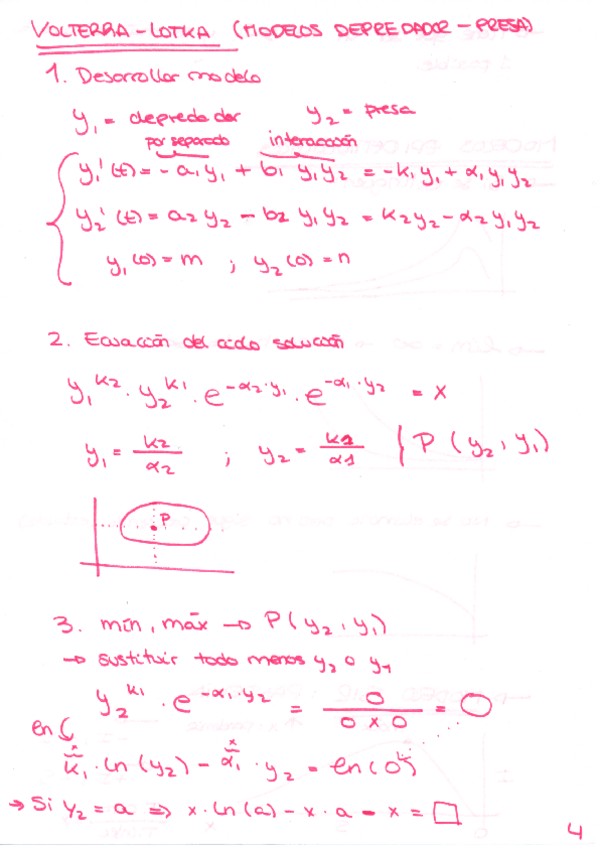 VOLTERRA-LOTKA (MODELOS DEPREDADOR-PRESA)
1. Desarrollar modelo
y₁ = depredador y₂ = presa
por separado interacción
y₁'(t) = -a₁y₁ + b₁ y₁y₂ = -k₁y₁ + α₁y₁y₂
y₂'(t) = a₂y₂ - b₂ y₁y₂ = k₂y₂ - α₂y₁y₂
y₁(0) = m ; y₂(0) = n
2. Ecuación del ciclo solución
y₁^k₂ · y₂^k₁ · e^(-α₂·y₁) · e^(-α₁·y₂) = x
y₁ = k₂/α₂ ; y₂ = k1/α1 | P (y₂, y₁)
P
3. mín, máx → P(y₂, y₁)
→ sustituir todo menos y₂ o y₁
y₂^k₁ · e^(-α₁·y₂) = 0/(0x0) = 0
en
x x
k₁ · ln(y₂) - α₁ · y₂ = ln(0)
→ Si y₂ = a ⇒ x·ln(a) - x·a - x = □
4